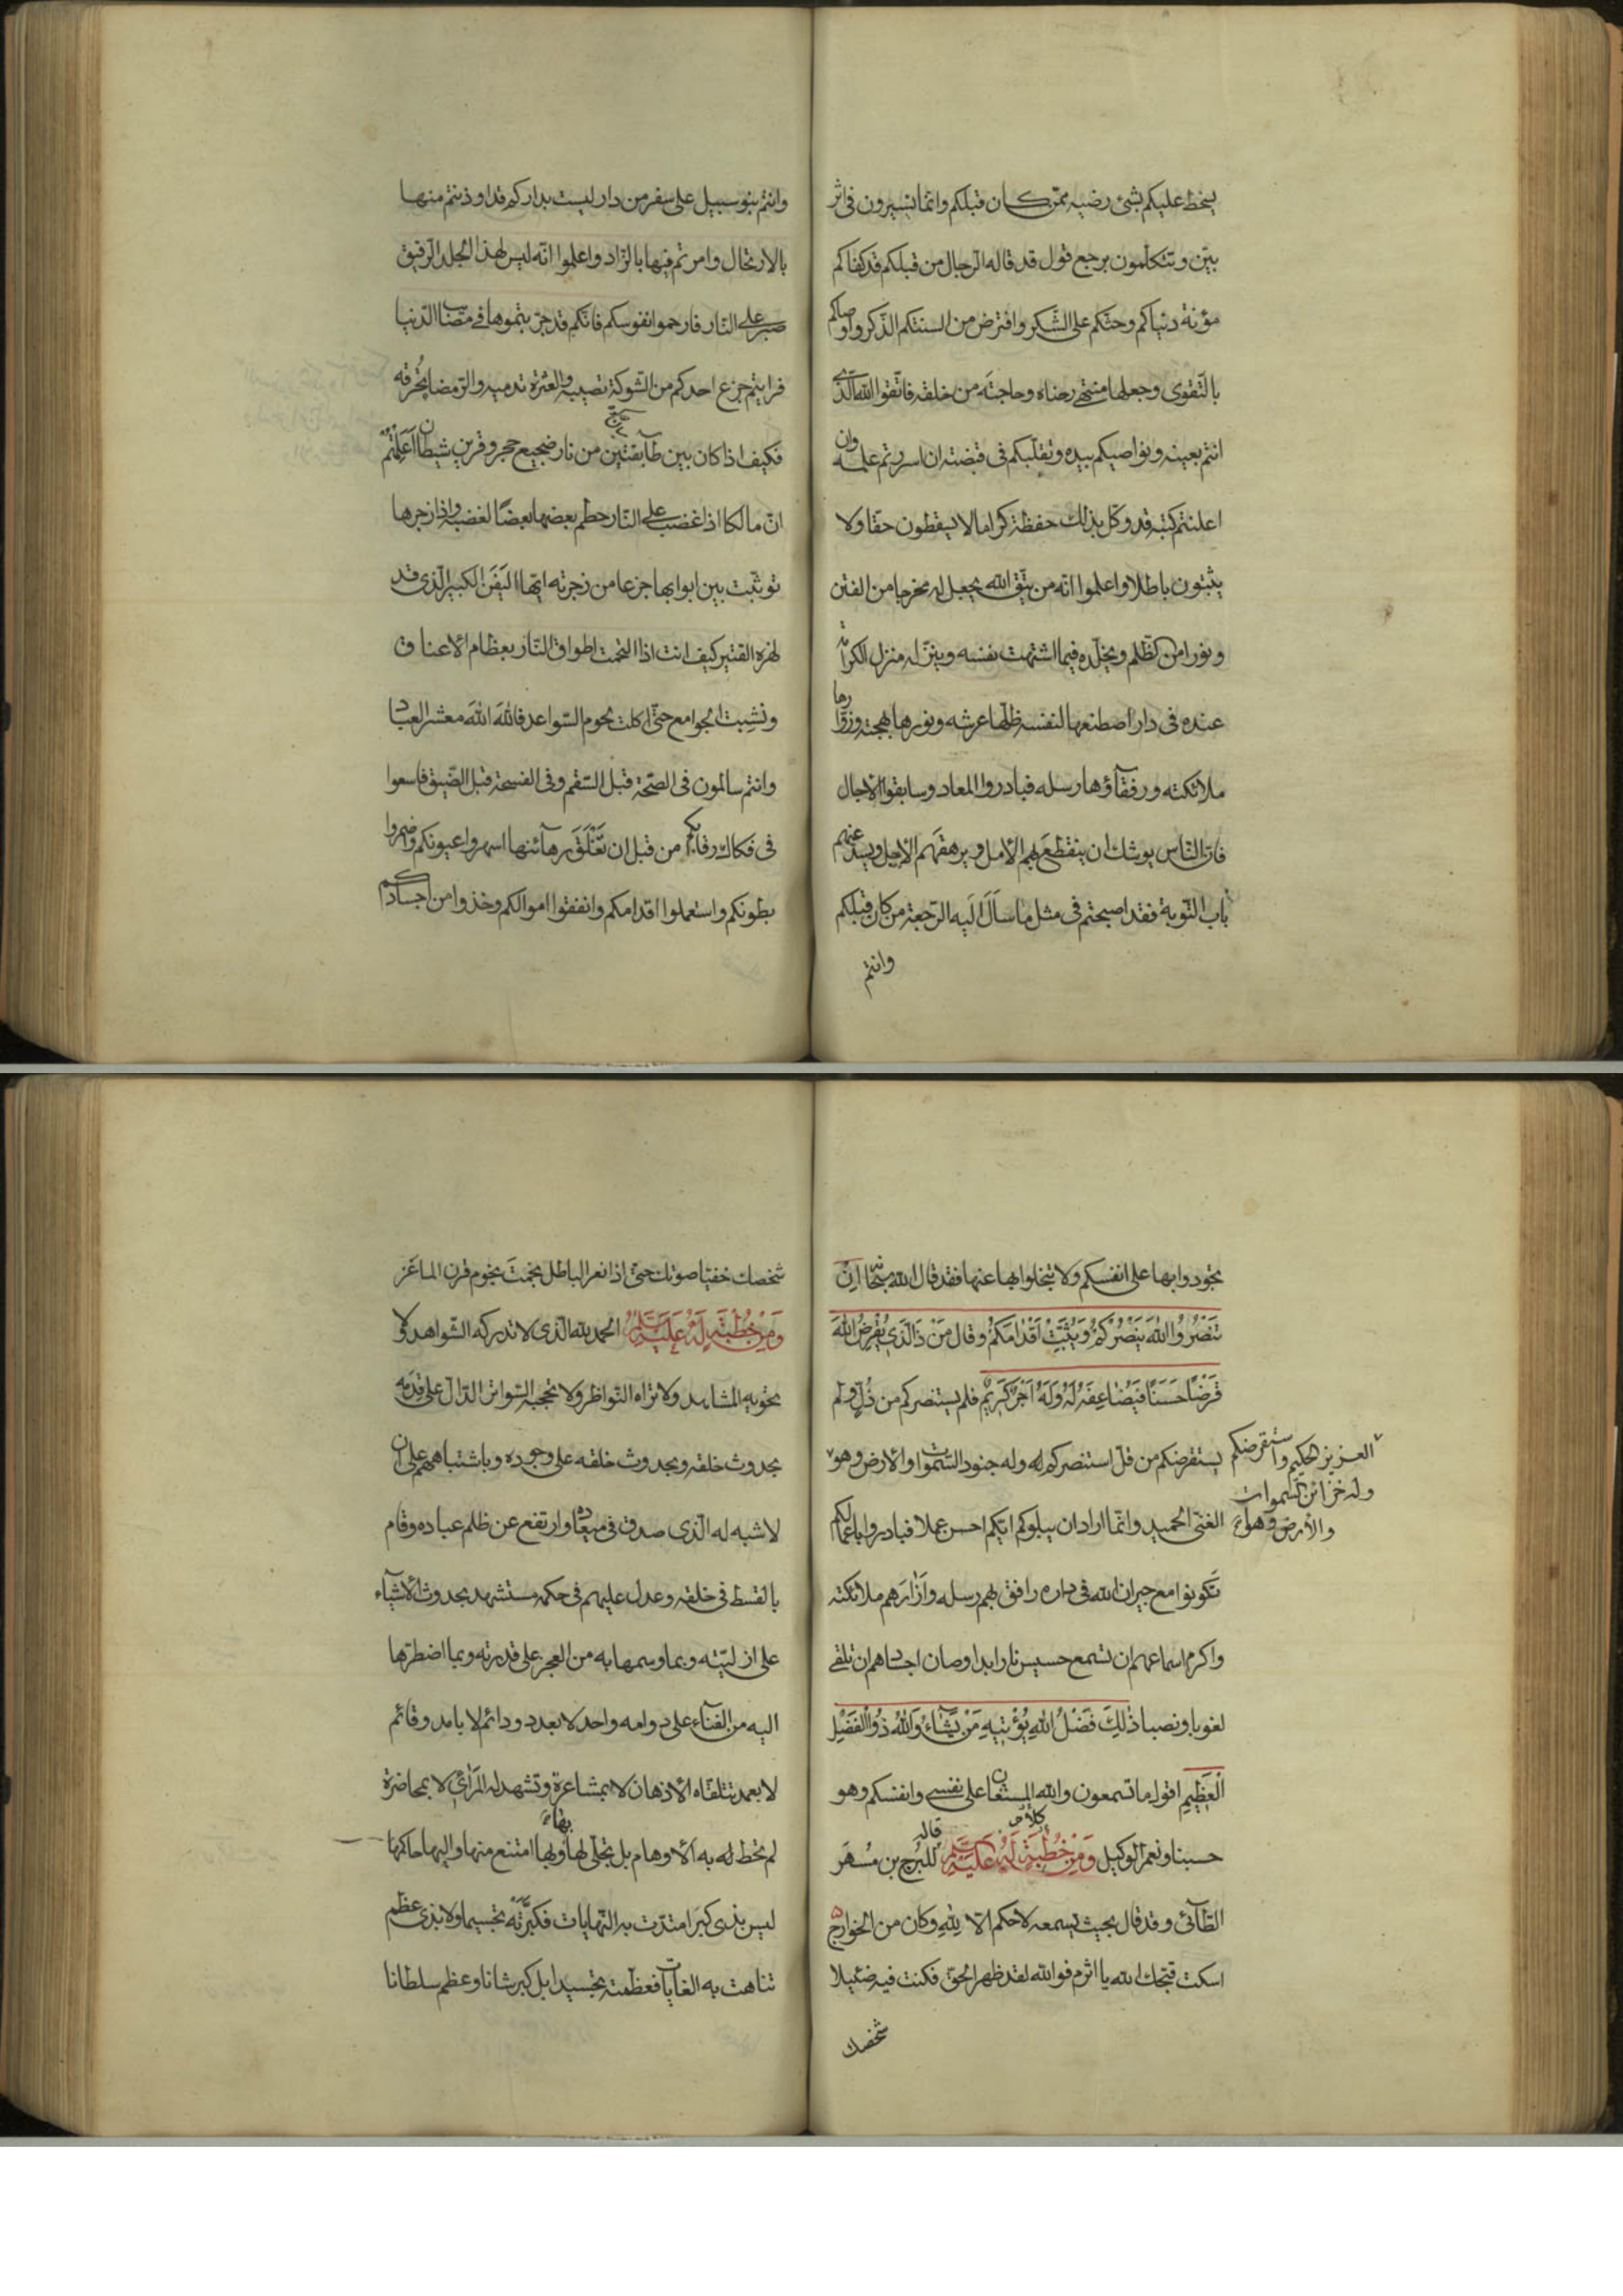 يسخط عليكم بشئ رضيه ممّن كان قبلكم وانما تسيرون فى اثر
بيّن وتتكلّمون برجع قول قد قاله الرّجال من قبلكم قد كفاكم
مؤنة دنياكم وحثّكم على الشّكر وافترض من السنتكم الذّكر واوصاكم
بالتّقوى وجعلها منتهى رضاه وحاجته من خلقه فاتّقوا الله الّذى
انتم بعينه ونواصيكم بيده وتقلّبكم فى قبضته ان اسررتم علمه وان
اعلنتم كتبه قد وكّل بذلك حفظة كراما لا يسقطون حقّا ولا
يثبتون باطلا واعلموا انّه من يتّق الله يجعل له مخرجا من الفتن
ونورا من الظّلم ويخلّده فيما اشتهت نفسه وينزّله منزل الكرامة
عنده فى دار اصطنعها لنفسه ظلّها عرشه ونورها بهجته وزوّارها
ملائكته ورفقآؤها رسله فبادروا المعاد وسابقوا الآجال
فانّ النّاس يوشك ان ينقطع بهم الأمل ويرهقهم الأجل ويسدّ عنهم
باب التّوبة فقد اصبحتم فى مثل ما سأل اليه الرّجعة من كان قبلكم
وانتم
وانتم بنو سبيل على سفر من دار ليست بداركم قد اوذنتم منها
بالارتحال وامرتم فيها بالزّاد واعلموا انّه ليس لهذا الجلد الرّقيق
صبر على النّار فارحموا نفوسكم فانّكم قد جرّبتموها فى مصائب الدّنيا
فرايتم جزع احدكم من الشّوكة تصيبه والعثرة تدميه والرّمضا تحرقه
فكيف اذا كان بين طابقتين من نار ضجيع حجر وقرين شيطان اعلمتم
انّ مالكا اذا غضب على النّار حطم بعضها بعضًا لغضبه واذا زجرها
توثّبت بين ابوابها جزعا من زجرته ايّها اليَفَن الكبير الّذى قد
لهزه القتير كيف انت اذا التحمت اطواق النّار بعظام الأعناق
ونشِبت الجوامع حتّى اكلت لحوم السّواعد فاللهَ اللهَ معشر العباد
وانتم سالمون فى الصّحّة قبل السّقم وفى الفسحة قبل الضّيق فاسعوا
فى فكاك رقابكم من قبل ان تُغْلَقَ رهآئنها اسهروا عيونكم واضمروا
بطونكم واستعملوا اقدامكم وانفقوا اموالكم وخذوا من اجسادكم
تجودوا بها على انفسكم ولا تبخلوا بها عنها فقد قال الله سبحانه اِنْ
تَنْصُرُوا اللهَ يَنْصُرْكُمْ وَيُثَبِّتْ اَقْدامَكُمْ وقال مَنْ ذَا الَّذى يُقْرِضُ اللهَ
قَرْضًا حَسَنًا فَيُضاعِفَهُ لَهُ وَلَهُ اَجْرٌ كَرِيْمٌ فلم يستنصركم من ذُلٍّ ولم
يستقرضكم من قلّ استنصركم وله جنود السّموات والأرض وهو
العزيز الحكيم واستقرضكم
وله خزائن السّموات
والأرض وهو
الغنى الحميد وانّما اراد ان يبلوكم ايّكم احسن عملا فبادروا باعمالكم
تكونوا مع جيران الله فى داره رافق بهم رسله وَاَزَارَهم ملائكته
واكرم اسماعهم ان تسمع حسيس نار ابدا وصان اجسادهم ان تلقى
لغوبا ونصبا ذٰلِكَ فَضْلُ اللهِ يُؤْتِيْهِ مَنْ يَّشَآءُ وَاللهُ ذُوالْفَضْلِ
الْعَظِيْمِ اقول ما تسمعون والله المستعان على نفسى وانفسكم وهو
حسبنا ونعم الوكيل وَمِنْ خُطْبَةٍ لَهُ عَلَيْهِ السَّلَمُ كلام قاله للبُرج بن مُسْهَر
الطّآئى وقد قال بحيث يسمعه لا حكم الّا لِلّٰهِ وكان من الخوارج
اسكت قبحك الله يا اثرم فوالله لقد ظهر الحقّ فكنت فيه ضئيلا
شخصك
شخصك خفيّا صوتك حتّى اذا نعر الباطل نجمتَ نجوم قرن الماعَز
وَمِنْ خُطْبَةٍ لَهُ عَلَيْهِ السَّلَمُ الحمد لله الّذى لا تدركه الشّواهد ولا
تحويه المشاهد ولا تراه النّواظر ولا تحجبه السّواتر الدّالّ على قدمه
بحدوث خلقه وبحدوث خلقه على وجوده وباشتباههم على ان
لا شبه له الّذى صدق فى ميعاده وارتفع عن ظلم عباده وقام
بالقسط فى خلقه وعدل عليهم فى حكمه مستشهد بحدوث الأشيآء
على ازليّته وبما وسمها به من العجز على قدرته وبما اضطرّها
اليه من الفنآء على دوامه واحد لا بعدد ودائم لا بامد وقائم
لا بعمد تتلقّاه الأذهان لا بمشاعرة وتشهد له المرائى لا بمحاضرة
لم تحط له به الأوهام بل تجلّى لها بها وبها امتنع منها واليها حاكمها
ليس بذى كِبَر امتدّت به النّهايات فكبّرته تجسيما ولا بذى عظم
تناهت به الغايات فعظّمته تجسيدا بل كبر شانا وعظم سلطانا